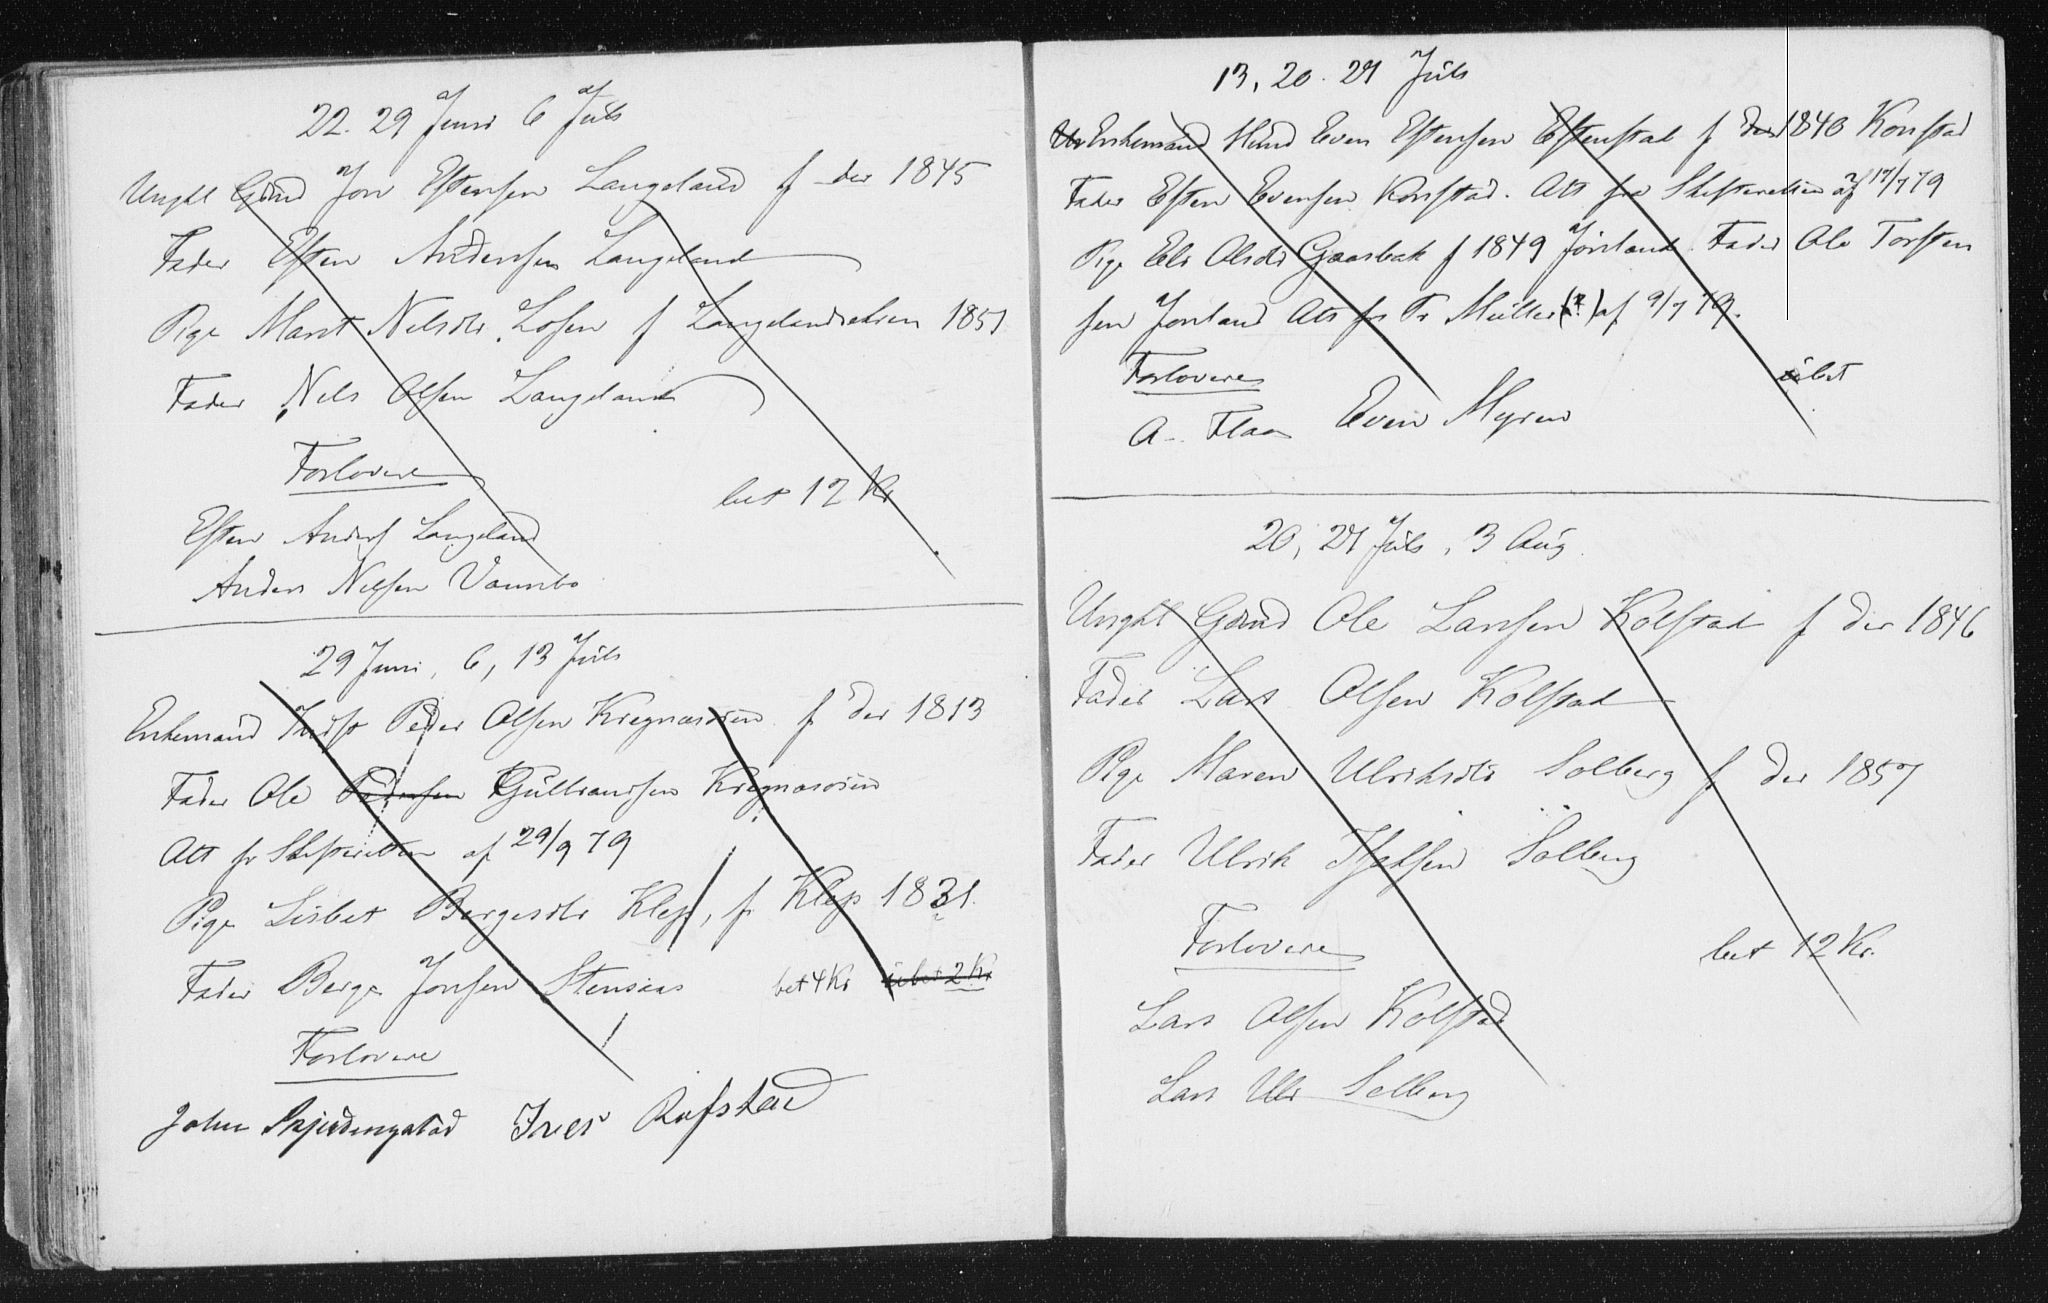 22. 29 Juni 6 Juli
Ungkl Gdmd Jon Estensen Langeland f der 1845
Fader Esten Andersen Langeland
Pige Marit Nelsdtr Losen f Langelandsehren 1851
Fader Nels Olsen Langeland
Forlovere
bet 12 Kr
Esten Anders Langeland
Anders Nelsen Vannbo
29 Juni, 6, 13 Juli
Enkemand Indst Peder Olsen Kregnæsøien f der 1813
Fader Ole Pedersen Gulbransen Kregnæsøien
Att fr Skifteretten af 29/9 79
Pige Lisbet Bergesdtr Klep, f Klep 1831.
Fader Berge Jonsen Stensaas bet 4 Kr ubet 2 Kr
Forlovere
John Skjerdingstad Iver Rofstad
13, 20. 27 Juli
Un Enkemand Hmd Even Estensen Estenstad f der 1840 Konstad
Fader Esten Evensen Konstad. Att fra Skifteretten af 17/7 79
Pige Eli Olsdtr Gaasbak f 1849 Jonland Fader Ole Torsten
sen Jonland Att fr Pr Müller (?) af 9/7 79.
Forlovere
ubet
A. Flaa Even Myren
20, 27 Juli, 3 Aug.
Ungkl Gdmd Ole Larsen Kolstad f der 1846
Fader Lars Olsen Kolstad
Pige Maren Ulriksdtr Solberg f der 1857
Fader Ulrik Solberg
Forlovere
bet 12 Kr.
Lars Olsen Kolstad
Lars Ulr Solberg